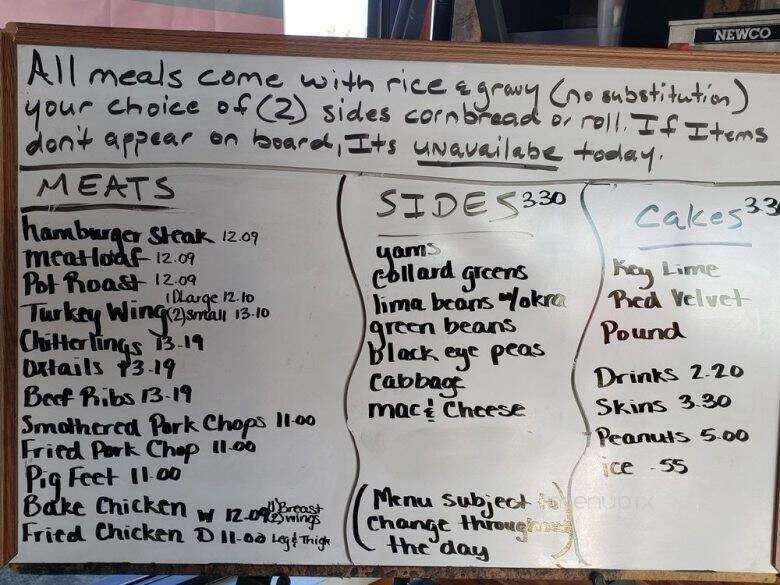 NEWCO
All meals come with rice & gravy (no substitution)
your choice of (2) sides cornbread or roll. If Items
don't appear on board, Its unavailabe today.
MEATS
hamburger Steak 12.09
meatloaf 12.09
Pot Roast 12.09
Turkey Wing (1) Large 12.10
(2) small 13.10
Chitterlings 13.19
Oxtails 13.19
Beef Ribs 13.19
Smothered Pork Chops 11.00
Fried Pork Chop 11.00
Pig Feet 11.00
Bake Chicken W 12.09 (1) Breast
(2) wings
Fried Chicken D 11.00 Leg & Thigh
SIDES 3.30
yams
collard greens
lima beans w/okra
green beans
black eye peas
cabbage
mac & Cheese
(Menu subject to
change throughout
the day)
Cakes 3.30
Key Lime
Red Velvet
Pound
Drinks 2.20
Skins 3.30
Peanuts 5.00
ice .55